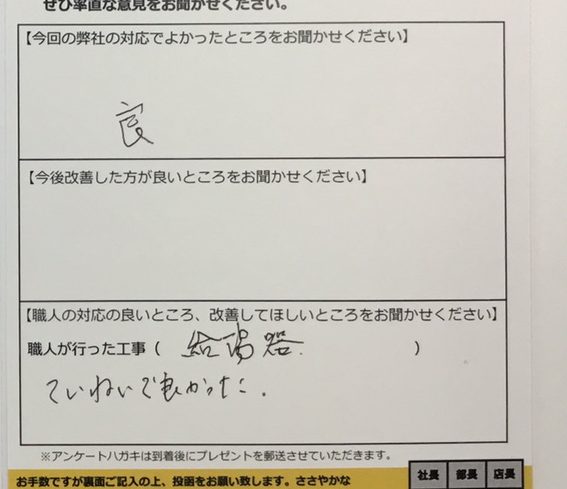 ぜひ率直な意見をお聞かせください。
【今回の弊社の対応でよかったところをお聞かせください】
良
【今後改善した方が良いところをお聞かせください】
【職人の対応の良いところ、改善してほしいところをお聞かせください】
職人が行った工事 ( 給湯器. )
ていねいで良かった.
※アンケートハガキは到着後にプレゼントを郵送させていただきます。
お手数ですが裏面ご記入の上、投函をお願い致します。ささやかな
社長 部長 店長